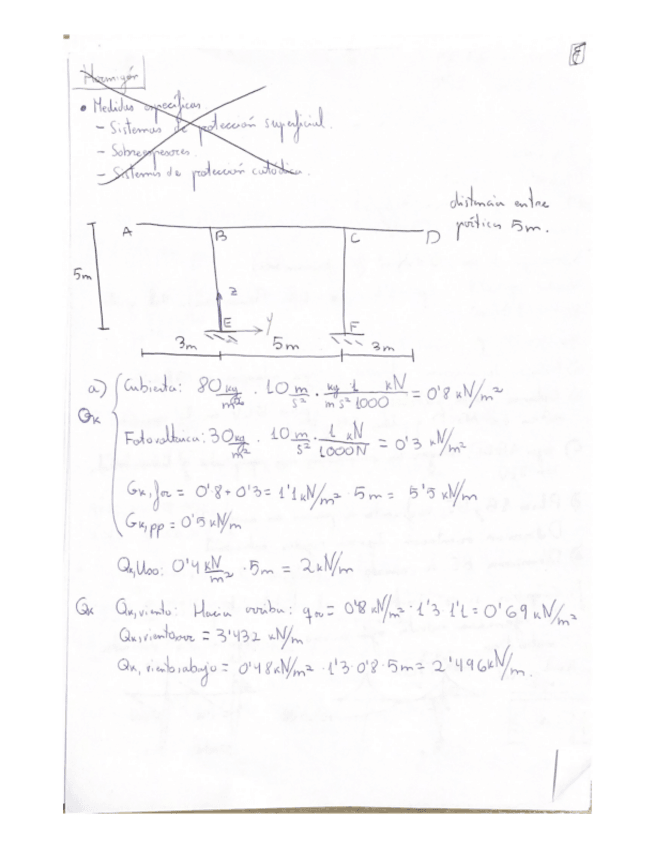 Hormigón
• Medidas específicas
- Sistemas de protección superficial.
- Sobreespesores.
- Sistemas de protección catódica.
distancia entre
pórticos 5m.
A B C D
5m
z
E y F
3m 5m 3m
a) Cubierta: 80 kg/m² · 10 m/s² · kg 1 kN / m s² 1000 = 0'8 kN/m²
Gk
Fotovoltaica: 30 kg/m² · 10 m/s² · 1 kN/1000N = 0'3 kN/m²
Gk, for = 0'8 + 0'3 = 1'1 kN/m² · 5m = 5'5 kN/m
Gk,pp = 0'5 kN/m
Qk,uso: 0'4 kN/m² · 5m = 2 kN/m
Qk Qk,viento: Hacia arriba: = 0'8 kN/m² · 1'3 · 1'1 = 0'69 kN/m²
= 3'432 kN/m
Qk, viento,abajo = 0'48 kN/m² · 1'3 · 0'8 · 5m = 2'496 kN/m.